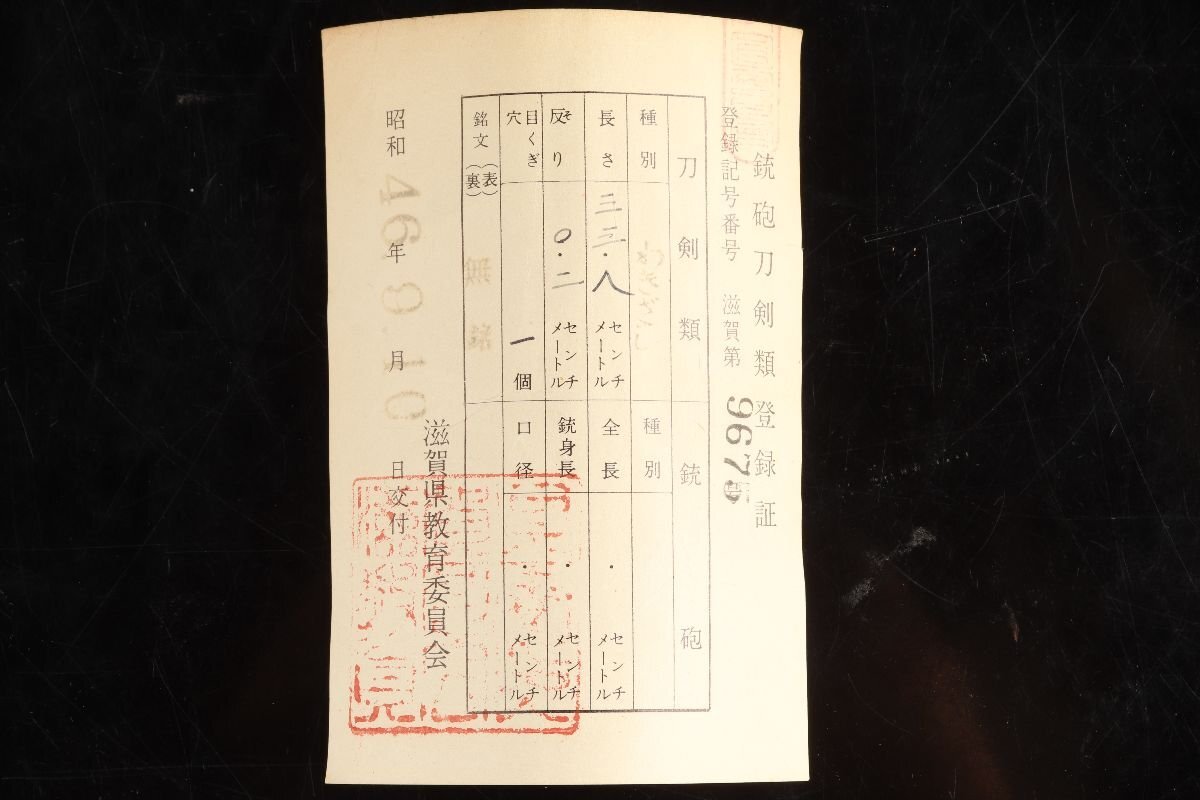 銃砲刀剣類登録証
登録記号番号 滋賀第 9675 号
刀剣類 銃砲
種別 わきざし 種別
長さ 三三・八 センチメートル 全長 ・ センチメートル
反り そ 〇・二 センチメートル 銃身長 ・ センチメートル
目くぎ穴 一個 口径 ・ センチメートル
銘文 (表) (裏) 無銘
滋賀県教育委員会
昭和 46 年 月 10 日交付